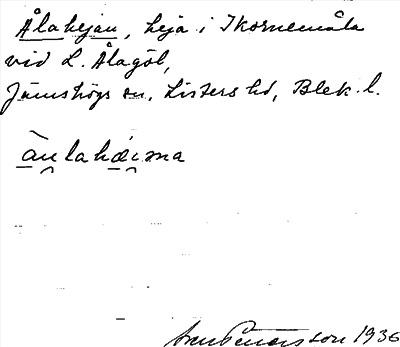 Ålahejan, heja i Ikornemåla
vid L. Ålagöl,
Jämshögs sn, Listers hd, Blek. l.
ànlahæima
Pettersson 1936